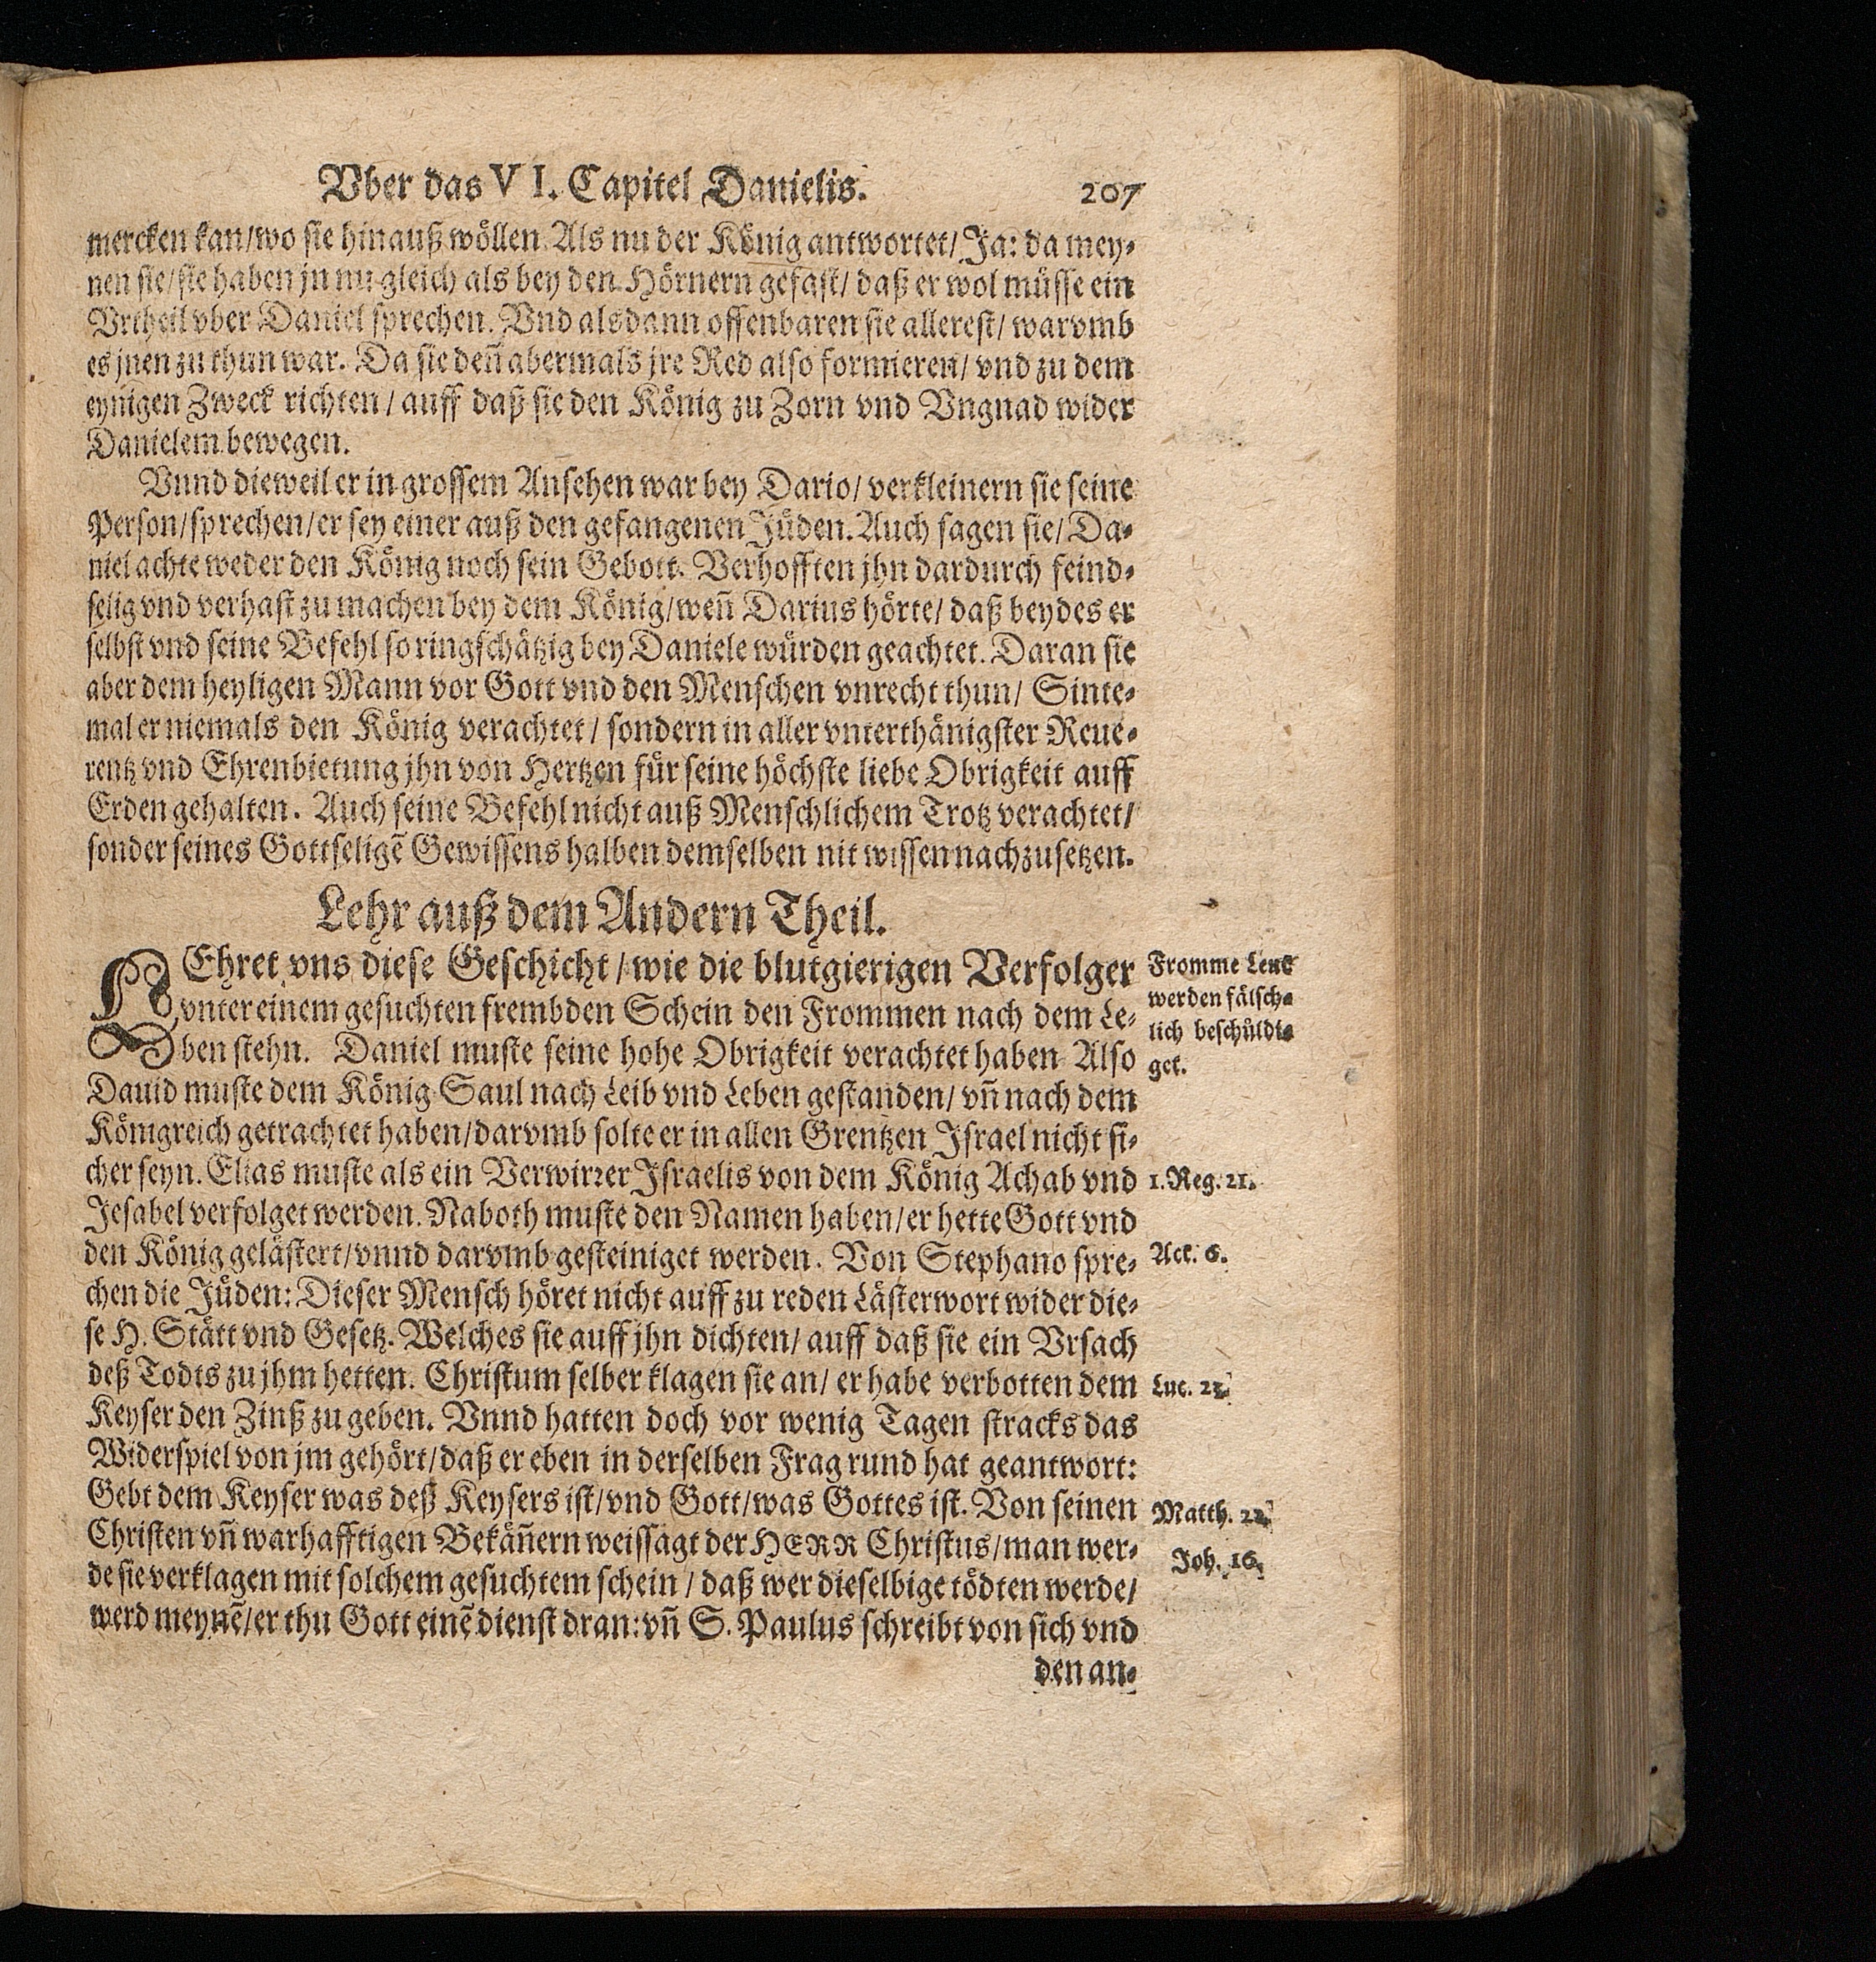 Vber das VI. Capitel Danielis. 207
mercken kan/wo sie hinauß wöllen. Als nu der König antwortet/ Ja: da mey-
nen sie/sie haben jn nu gleich als bey den Hörnern gefast/ daß er wol müsse ein
Vrtheil vber Daniel sprechen. Vnd alsdann offenbaren sie allerest/ warvmb
es jnen zu thun war. Da sie deñ abermals jre Red also formieren/ vnd zu dem
eynigen Zweck richten/ auff daß sie den König zu Zorn vnd Vngnad wider
Danielem bewegen.
Vnnd dieweil er in grossem Ansehen war bey Dario/ verkleinern sie seine
Person/sprechen/er sey einer auß den gefangenen Jüden. Auch sagen sie/ Da-
niel achte weder den König noch sein Gebott. Verhofften jhn dardurch feind-
selig vnd verhast zu machen bey dem König/weñ Darius hörte/ daß beydes er
selbst vnd seine Befehl so ringschätzig bey Daniele würden geachtet. Daran sie
aber dem heyligen Mann vor Gott vnd den Menschen vnrecht thun/ Sinte-
mal er niemals den König verachtet/ sondern in aller vnterthänigster Reue-
rentz vnd Ehrenbietung jhn von Hertzen für seine höchste liebe Obrigkeit auff
Erden gehalten. Auch seine Befehl nicht auß Menschlichem Trotz verachtet/
sonder seines Gottseligē Gewissens halben demselben nit wissen nachzusetzen.
Lehr auß dem Andern Theil.
LEhret vns diese Geschicht/wie die blutgierigen Verfolger
vnter einem gesuchten frembden Schein den Frommen nach dem Le-
ben stehn. Daniel muste seine hohe Obrigkeit verachtet haben Also
Dauid muste dem König Saul nach Leib vnd Leben gestanden/ vñ nach dem
Königreich getrachtet haben/darvmb solte er in allen Grentzen Israel nicht si-
cher seyn. Elias muste als ein Verwirrer Israelis von dem König Achab vnd
Jesabel verfolget werden. Naboth muste den Namen haben/er hette Gott vnd
den König gelästert/vnnd darvmb gesteiniget werden. Von Stephano spre-
chen die Jüden: Dieser Mensch höret nicht auff zu reden Lästerwort wider die-
se H. Stätt vnd Gesetz. Welches sie auff jhn dichten/ auff daß sie ein Vrsach
deß Todts zu jhm hetten. Christum selber klagen sie an/ er habe verbotten dem
Keyser den Zinß zu geben. Vnnd hatten doch vor wenig Tagen stracks das
Widerspiel von jm gehört/daß er eben in derselben Frag rund hat geantwort:
Gebt dem Keyser was deß Keysers ist/vnd Gott/was Gottes ist. Von seinen
Christen vñ warhafftigen Bekäñern weissagt der HERR Christus/man wer-
de sie verklagen mit solchem gesuchtem schein/ daß wer dieselbige tödten werde/
werd meynē/er thu Gott einē dienst dran: vñ S. Paulus schreibt von sich vnd
den an-
Fromme Leut
werden fälsch-
lich beschüldi-
get.
1. Reg. 21.
Act. 6.
Luc. 23.
Matth. 22.
Joh. 16.